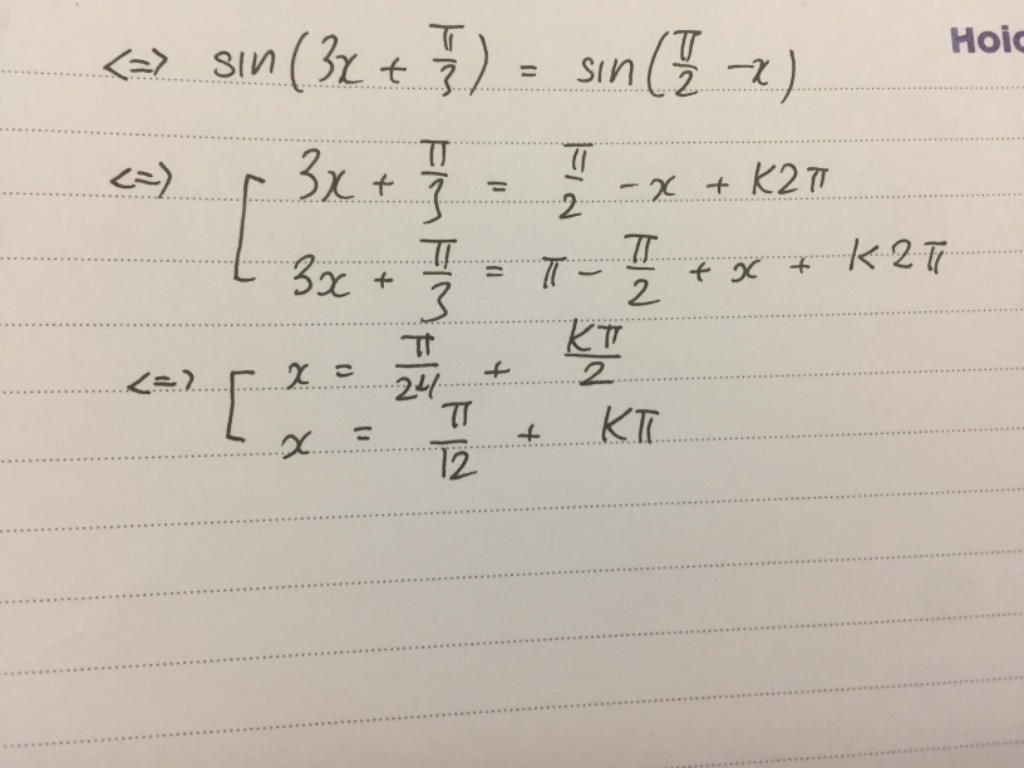 Hoic
<=> sin(3x + π/3) = sin(π/2 - x)
<=> [ 3x + π/3 = π/2 - x + K2π
3x + π/3 = π - π/2 + x + K2π
<=> [ x = π/24 + Kπ/2
x = π/12 + Kπ